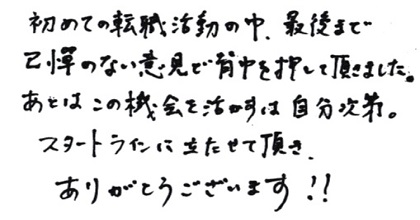 初めての転職活動の中、最後まで
忌憚のない意見で背中を押して頂きました。
あとはこの機会を活かすは自分次第。
スタートラインに立たせて頂き、
ありがとうございます!!